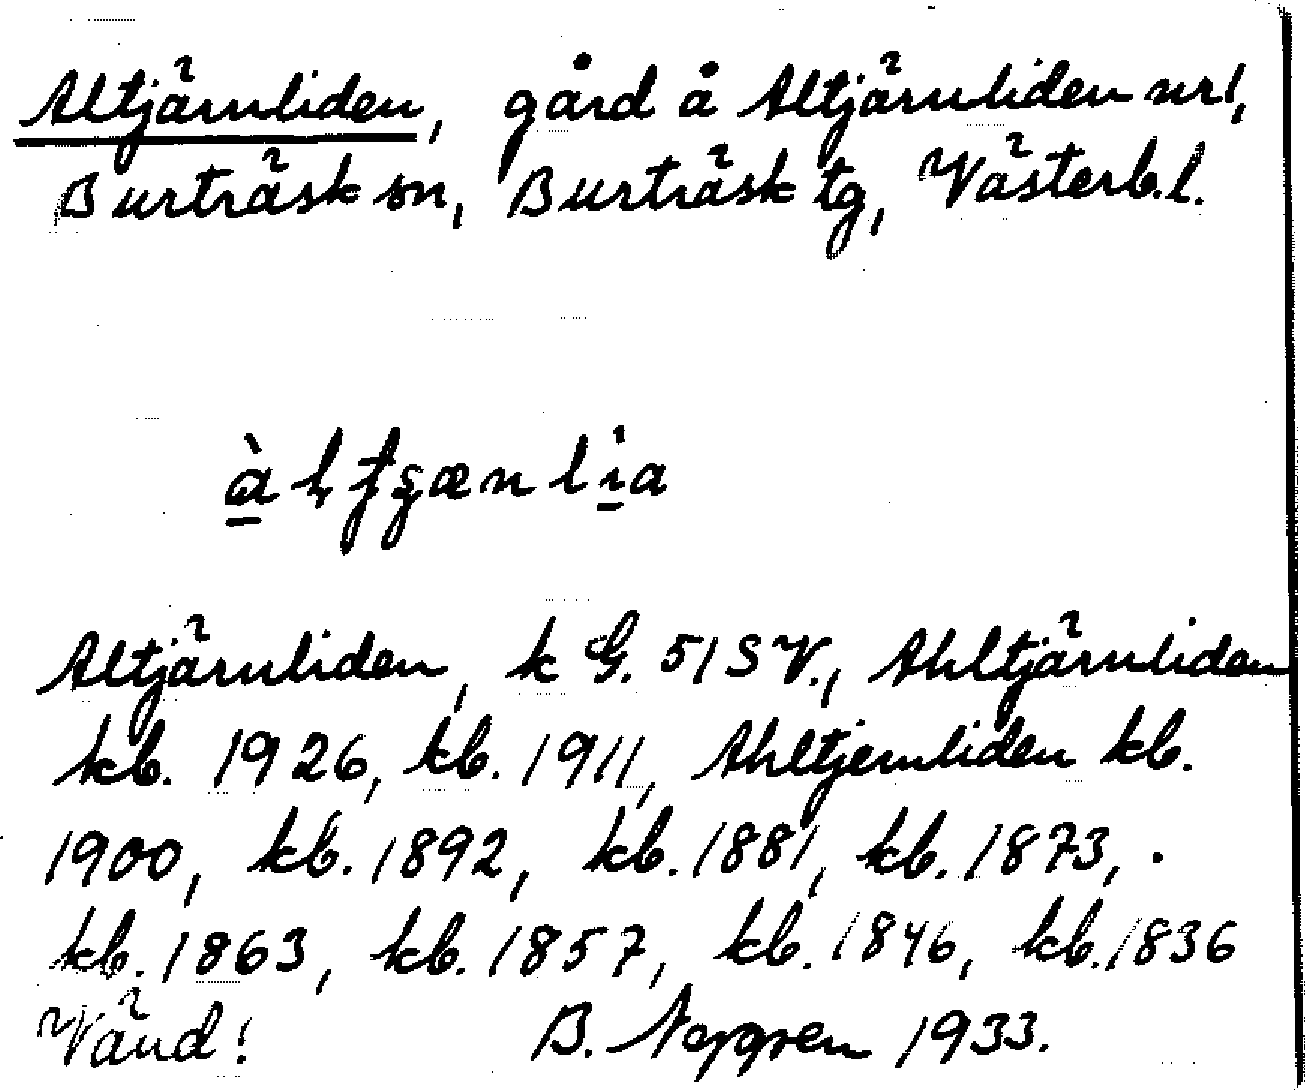 Altjärnliden, gård å Altjärnliden nr 1,
Burträsk sn, Burträsk tg, Västerb.l.
Altjärnliden, k G. 51 SV., Ahltjärnliden
kb. 1926, kb. 1911, Ahltjernliden kb.
1900, kb. 1892, kb. 1881, kb. 1873,
kb. 1863, kb. 1857, kb. 1846, kb. 1836
Vänd! B. 1933.